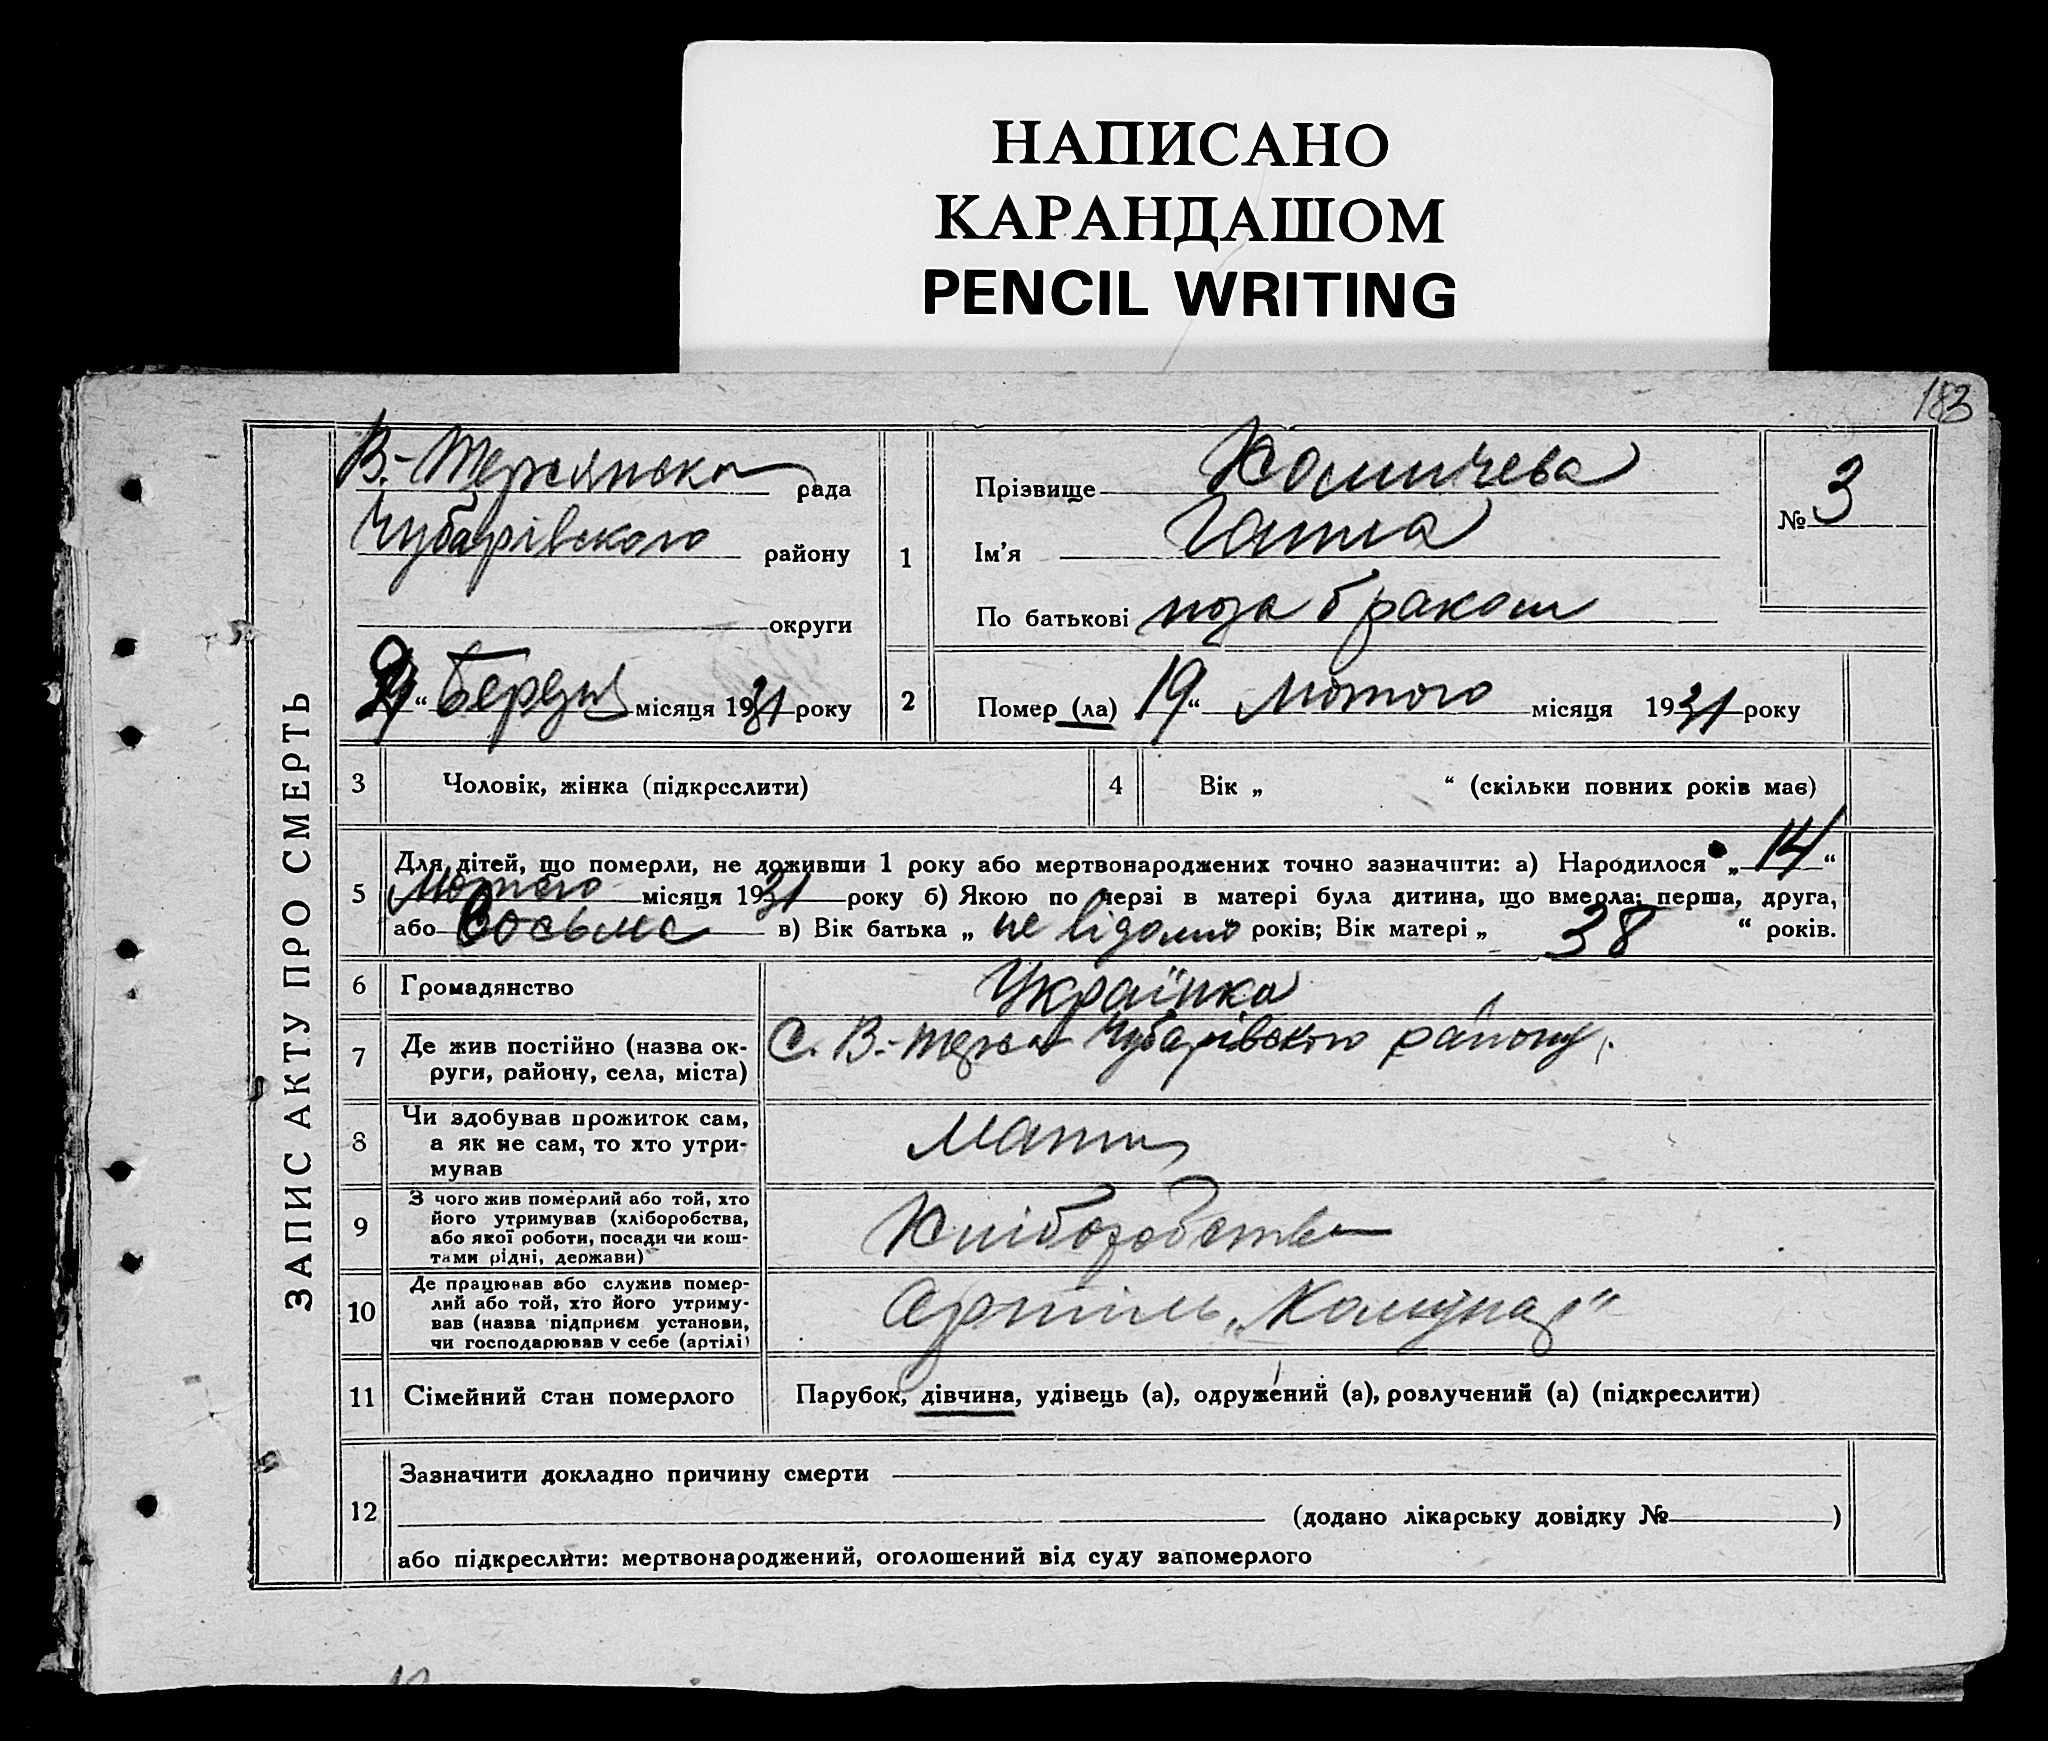 НАПИСАНО
КАРАНДАШОМ
PENCIL WRITING
183
ЗАПИС АКТУ ПРО СМЕРТЬ
В.-Терсянська рада
Чубарівського району
округи
2 „ Березня місяця 1931 року
1
Прізвище
Ім’я Ганна
По батькові поза браком
№ 3
2
Помер (ла) 19 “ Лютого місяця 1931 року
3 Чоловік, жінка (підкреслити)
4 Вік „ “ (скільки повних років має)
5 Для дітей, що померли, не доживши 1 року або мертвонароджених точно зазначити: а) Народилося „ 14 “
Лютого місяця 1931 року б) Якою по черзі в матері була дитина, що вмерла: перша, друга,
або Восьма в) Вік батька „ не відомо років; Вік матері „ 38 “ років.
6 Громадянство Українка
7 Де жив постійно (назва ок-
руги, району, села, міста)
С. В.-Терса Чубарівського району.
8 Чи здобував прожиток сам,
а як не сам, то хто утри-
мував
Мати
9 З чого жив померлий або той, хто
його утримував (хліборобства,
або якої роботи, посади чи кош-
тами рідні, держави)
Хліборобства
10 Де працював або служив помер-
лий або той, хто його утриму-
вав (назва підприєм установи,
чи господарював у себе (артілі)
Артіль „Комунар“
11 Сімейний стан померлого Парубок, дівчина, удівець (а), одружений (а), розлучений (а) (підкреслити)
12 Зазначити докладно причину смерти
(додано лікарську довідку № )
або підкреслити: мертвонароджений, оголошений від суду запомерлого